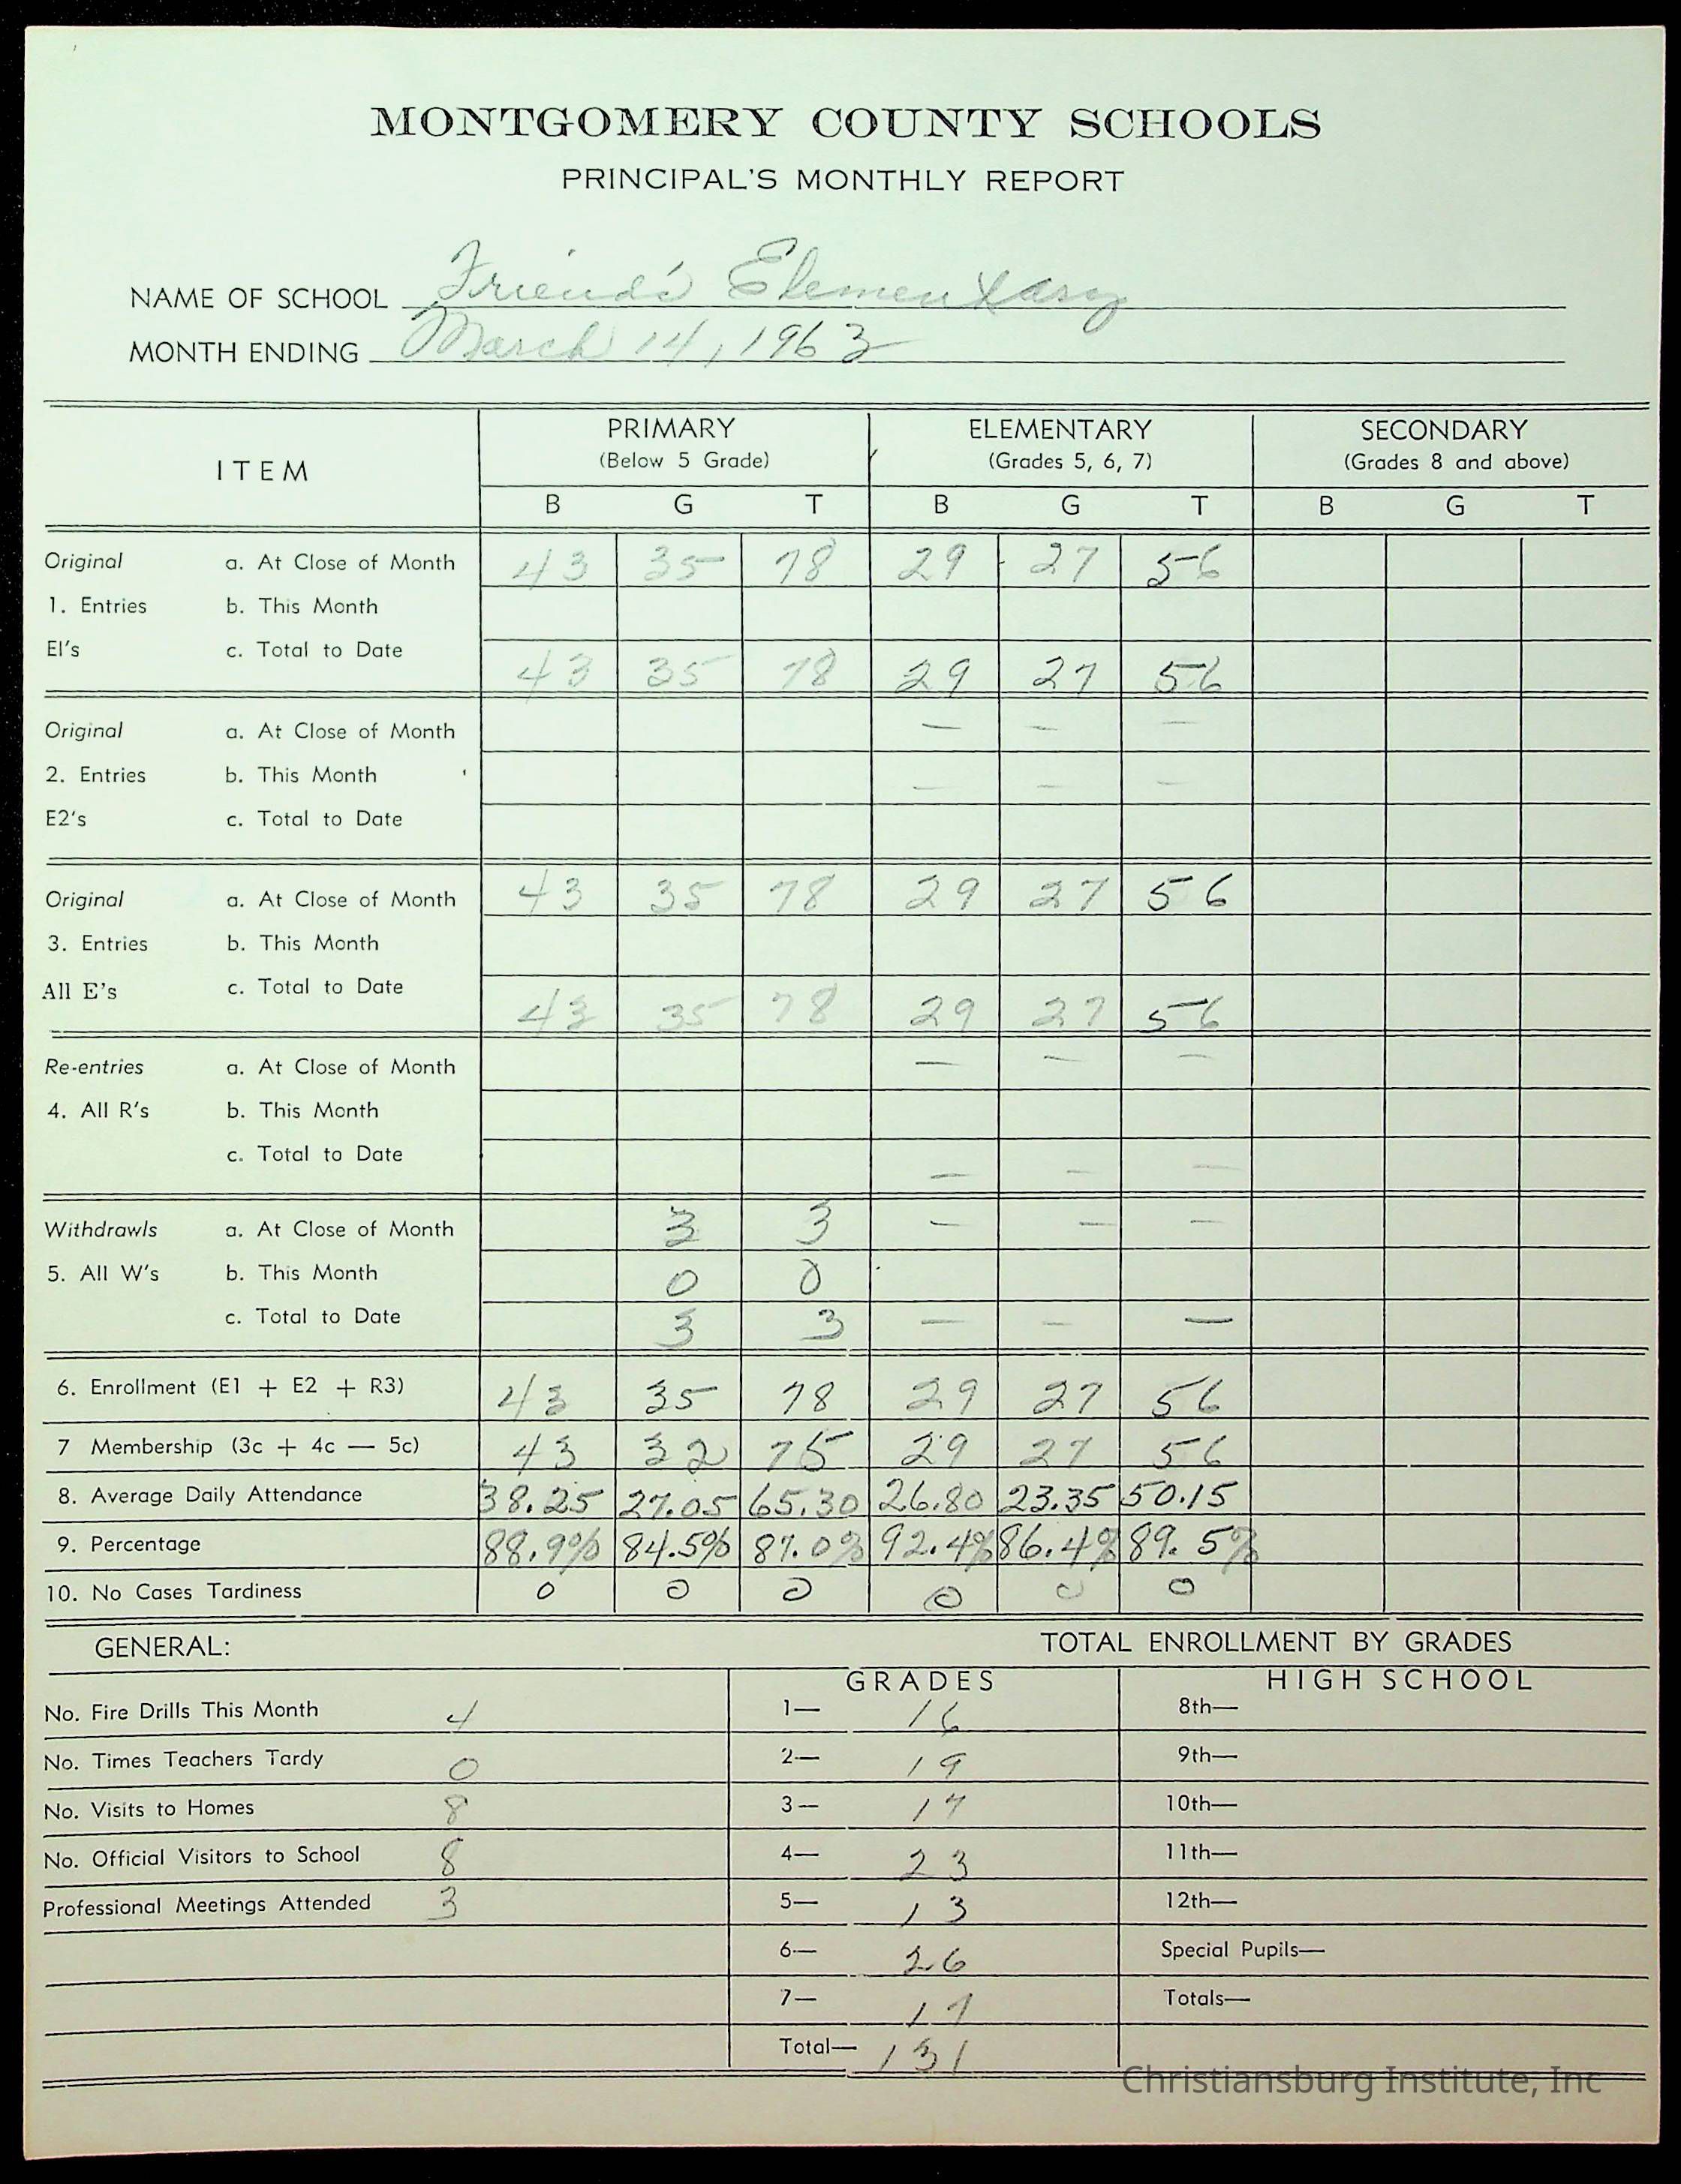 MONTGOMERY COUNTY SCHOOLS
PRINCIPAL'S MONTHLY REPORT
NAME OF SCHOOL Friend's Elementary
MONTH ENDING March 14, 1963
ITEM PRIMARY (Below 5 Grade) ELEMENTARY (Grades 5, 6, 7) SECONDARY (Grades 8 and above)
B G T B G T B G T
Original a. At Close of Month 43 35 78 29 27 56
1. Entries b. This Month
El's c. Total to Date 43 35 78 29 27 56
Original a. At Close of Month — — —
2. Entries b. This Month — — —
E2's c. Total to Date
Original a. At Close of Month 43 35 78 29 27 56
3. Entries b. This Month
All E's c. Total to Date 43 35 78 29 27 56
Re-entries a. At Close of Month — — —
4. All R's b. This Month
c. Total to Date — — —
Withdrawls a. At Close of Month 3 3 — — —
5. All W's b. This Month 0 0
c. Total to Date 3 3 — — —
6. Enrollment (E1 + E2 + R3) 43 35 78 29 27 56
7 Membership (3c + 4c — 5c) 43 32 75 29 27 56
8. Average Daily Attendance 38.25 27.05 65.30 26.80 23.35 50.15
9. Percentage 88.9% 84.5% 87.0% 92.4% 86.4% 89.5%
10. No Cases Tardiness 0 0 0 0 0 0
GENERAL: TOTAL ENROLLMENT BY GRADES
GRADES HIGH SCHOOL
No. Fire Drills This Month 4 1— 16 8th—
No. Times Teachers Tardy 0 2— 19 9th—
No. Visits to Homes 8 3— 17 10th—
No. Official Visitors to School 8 4— 23 11th—
Professional Meetings Attended 3 5— 13 12th—
6— 26 Special Pupils—
7— 17 Totals—
Total— 131
Christiansburg Institute, Inc